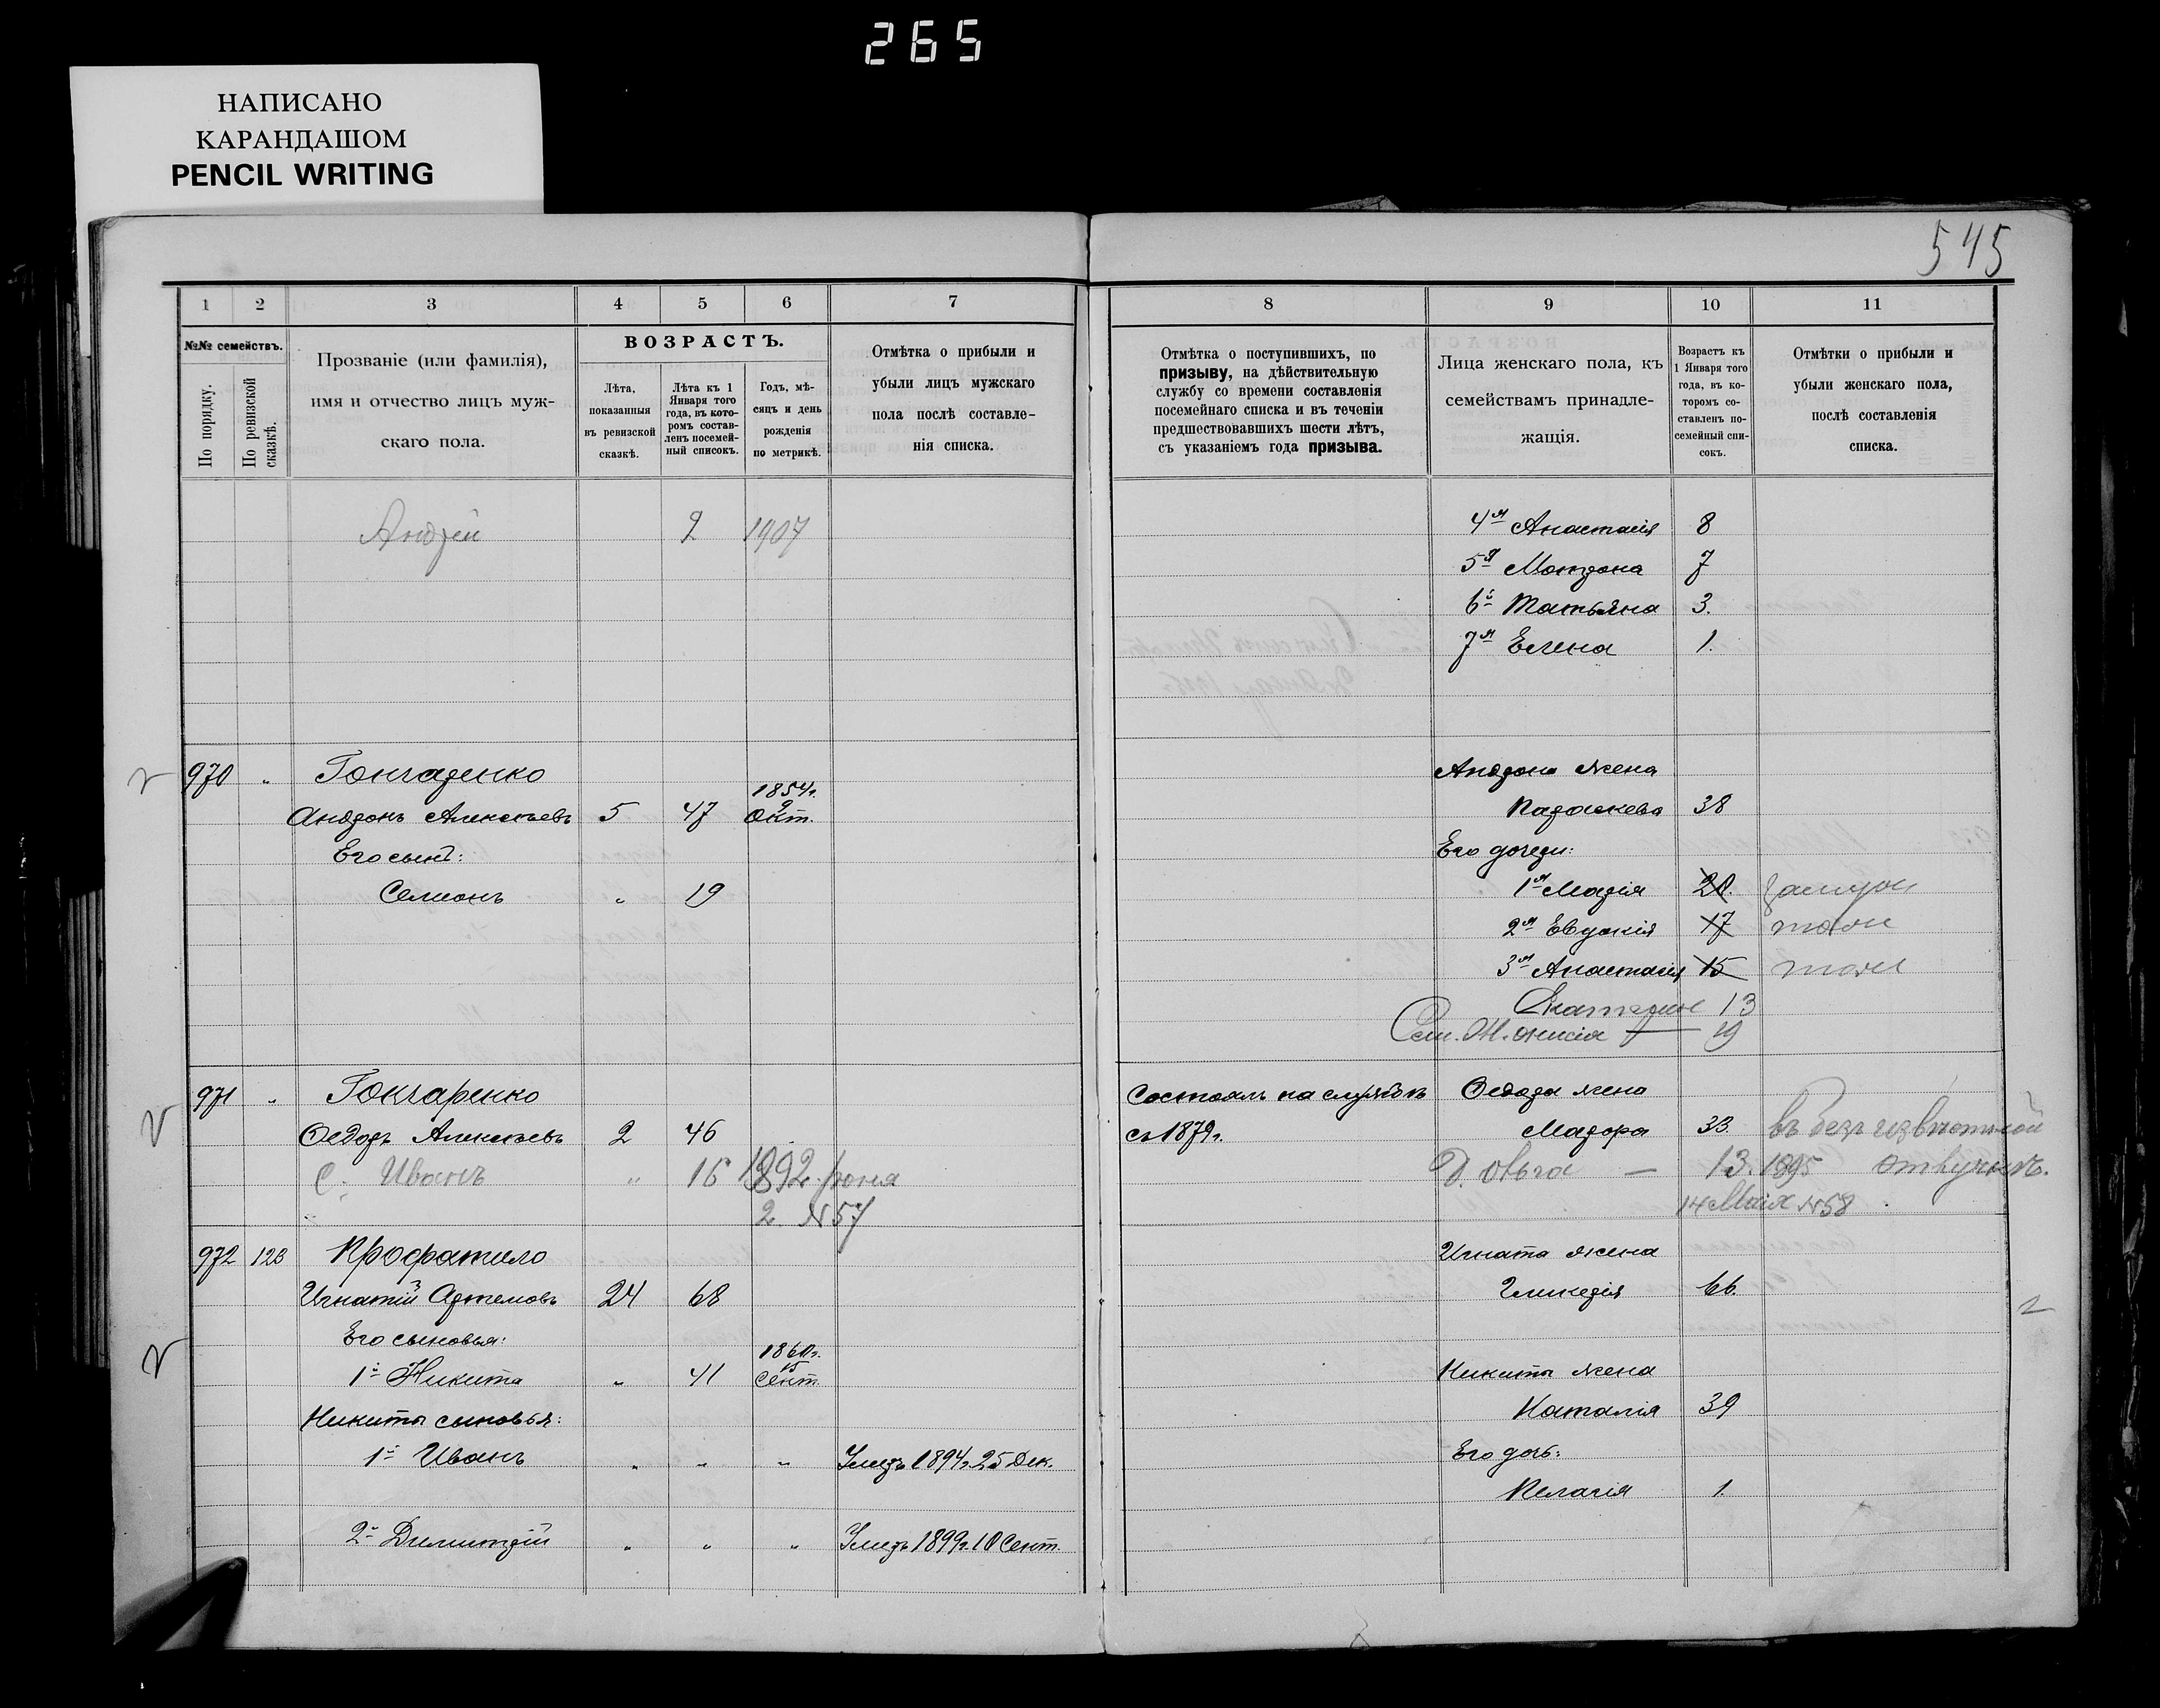 265
НАПИСАНО
КАРАНДАШОМ
PENCIL WRITING
545
1 2 3 4 5 6 7
№№ семействъ.
По порядку.
По ревизской сказкѣ.
Прозваніе (или фамилія),
имя и отчество лицъ муж-
скаго пола.
ВОЗРАСТЪ.
Лѣта,
показанныя
въ ревизской
сказкѣ.
Лѣта къ 1
Января того
года, въ кото-
ромъ состав-
ленъ посемей-
ный списокъ.
Годъ, мѣ-
сяцъ и день
рожденія
по метрикѣ.
Отмѣтка о прибыли и
убыли лицъ мужскаго
пола послѣ составле-
нія списка.
Андрей 2 1907
970 " Гончаренко
Андронъ Алексѣевъ 5 47 1854г. 9 Окт.
Его сынъ:
Семионъ " 19
971 " Гончаренко
Ѳедоръ Алексѣевъ 2 46
С. Иванъ " 16 1892 Іюня
2 №57
972 123 Крофатило
Игнатій Артемовъ 24 68
Его сыновья:
1й Никита " 41 1860г. 15 Сент.
Никиты сыновья:
1й Иванъ " " " Умеръ 1894г. 25 Дек.
2й Димитрій " " " Умеръ 1899г. 10 Сент.
8 9 10 11
Отмѣтка о поступившихъ, по
призыву, на дѣйствительную
службу со времени составленія
посемейнаго списка и въ теченіи
предшествовавшихъ шести лѣтъ,
съ указаніемъ года призыва.
Лица женскаго пола, къ
семействамъ принадле-
жащія.
Возрастъ къ
1 Января того
года, въ ко-
торомъ со-
ставленъ по-
семейный спи-
сокъ.
Отмѣтки о прибыли и
убыли женскаго пола,
послѣ составленія
списка.
4я Анастасія 8
5я Мотрона 7
6я Татьяна 3.
7я Елена 1.
Андрона жена
Параскева 38
Его дочери:
1я Марія 20. замужи
2я Евдокія 17 тоже
3я Анастасія 15 тоже
Екатерине 13
Сем. Ж. 19
Состоялъ на службѣ Ѳедора жена
съ 1879г. Мавра 33. въ безъизвѣстной
Д. Ольга — 13. 1895 отлучкѣ.
14 Мая №58
Игната жена
Гликерія 66.
Никиты жена
Наталія 39
Его дочь:
Пелагія 1.